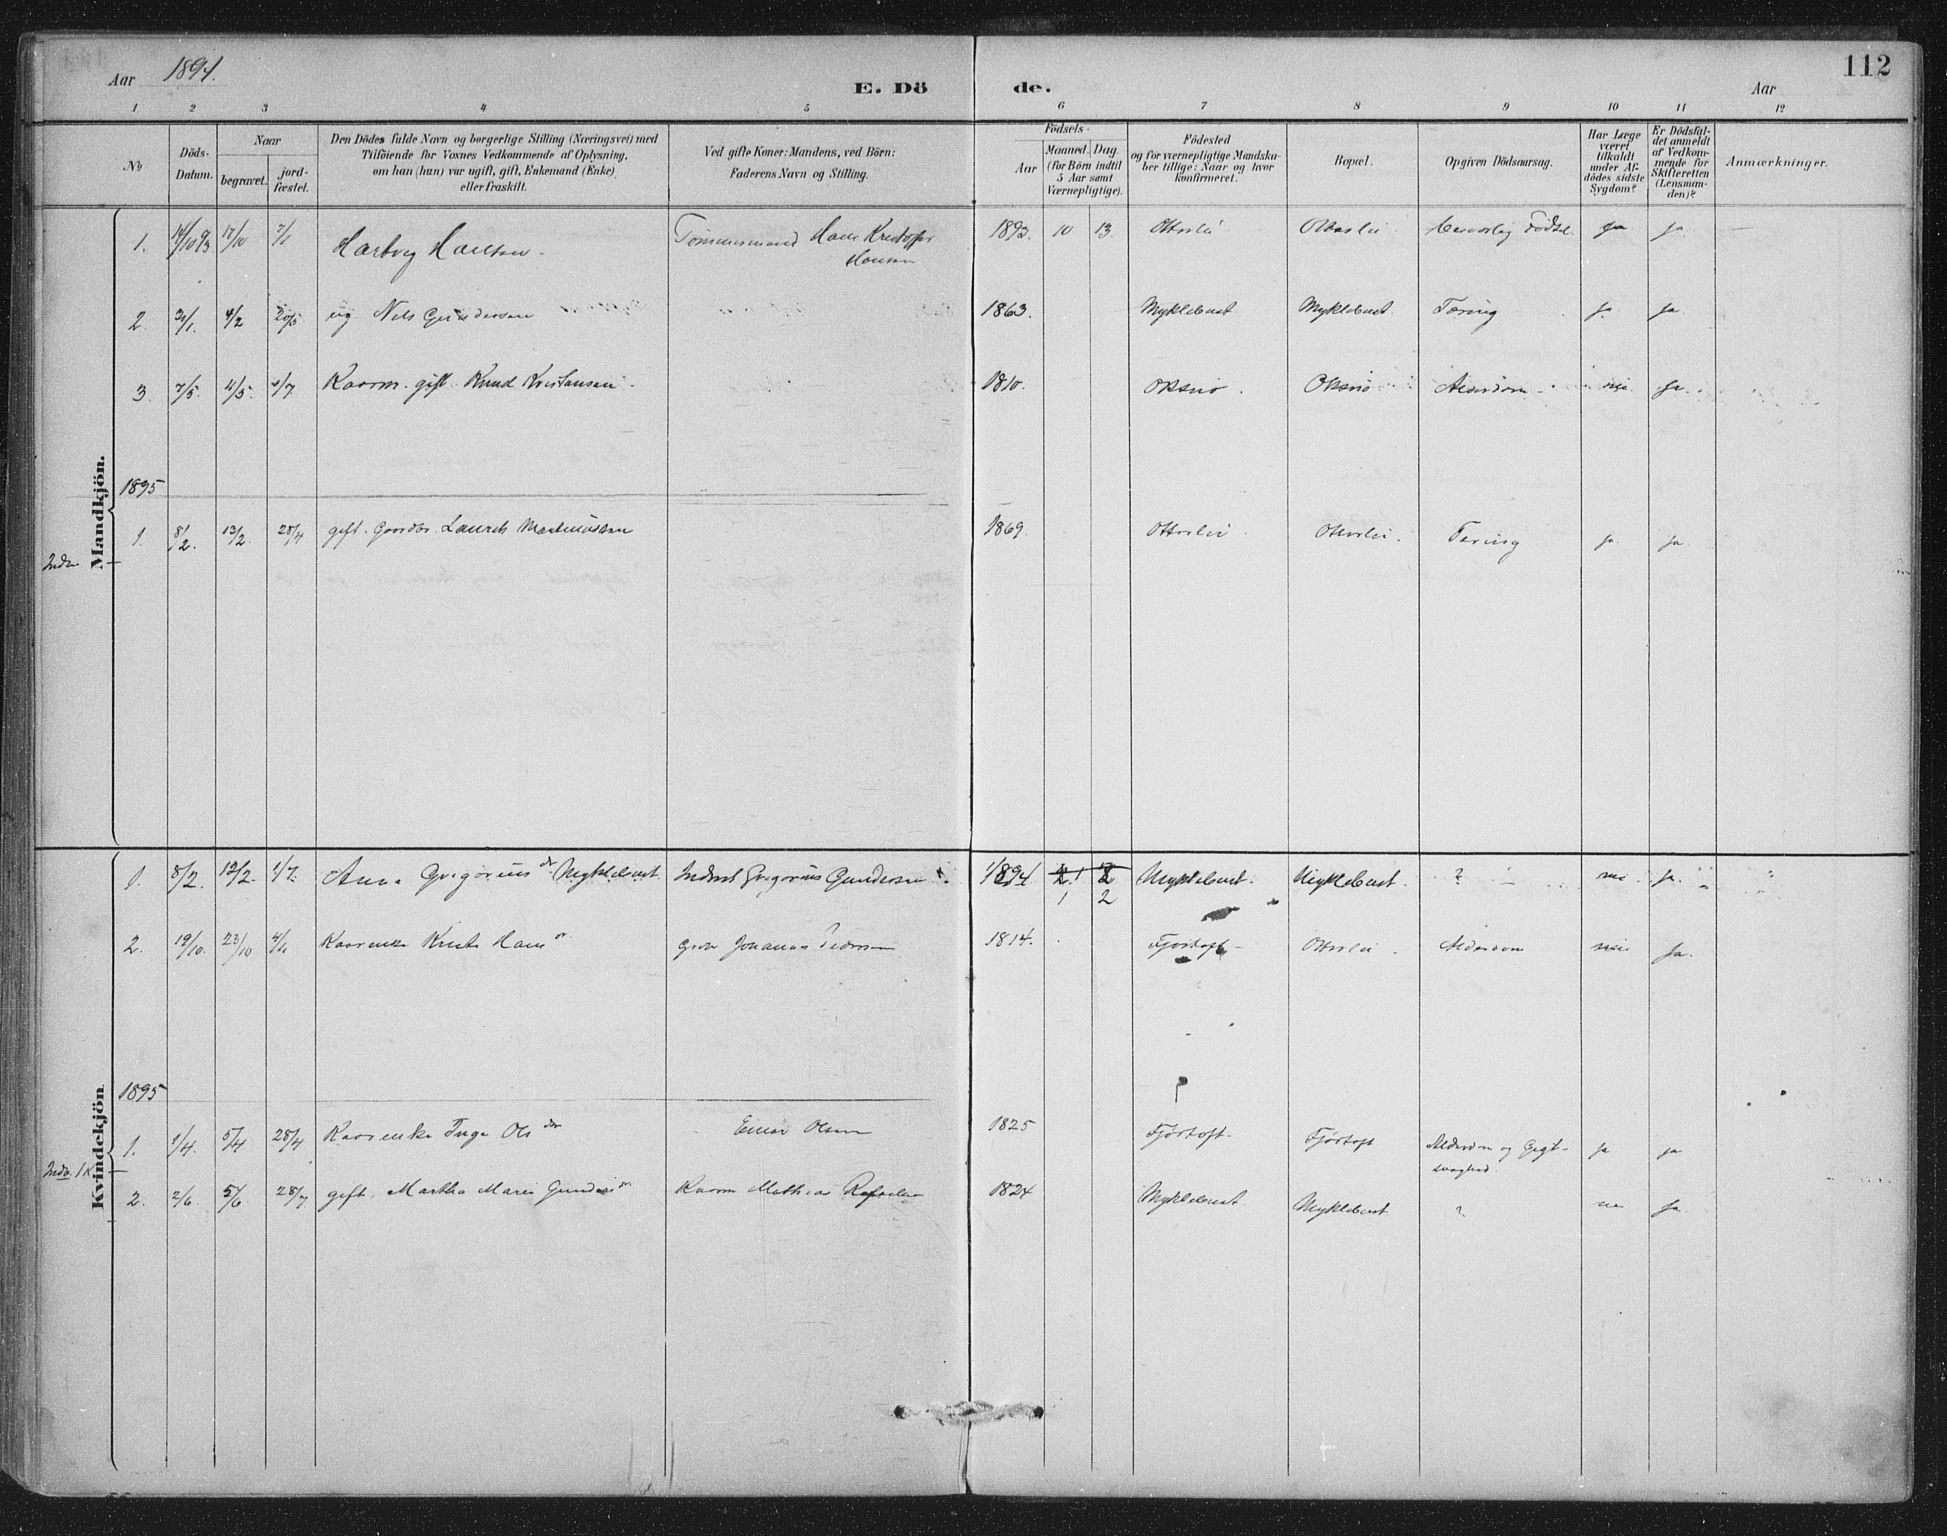 Aar 1894.
E. Döde.
Aar
112
1 2 3 4 5 6 7 8 9 10 11 12
No
Döds-Datum.
Naar
begravet.
jord-fæstet.
Den Dödes fulde Navn og borgerlige Stilling (Næringsvei) med
Tilföiende for Voxnes Vedkommende af Oplysning,
om han (hun) var ugift, gift, Enkemand (Enke)
eller fraskilt.
Ved gifte Koner: Mandens, ved Börn:
Faderens Navn og Stilling.
Födsels-
Aar
Maaned. Dag
(for Börn indtil
5 Aar samt
Værnepligtige).
Födested
og for værnepligtige Mandska-
ber tillige: Naar og hvor
konfirmeret.
Bopæl.
Opgiven Dödsaarsag.
Har Læge
været
tilkaldt
under Af-
dödes sidste
Sygdom?
Er Dödsfal-
det anmeldt
af Vedkom-
mende for
Skifteretten
(Lensman-
den)?
Anmærkninger.
Mandkjön.
1. 14/10 93 17/10 7/1 Hartvig Hansen. Tømmermand Hans Kristoffer Hansen 1893. 10 13. Otterlei Otterlei Fødsel. ja ja. —
2. 31/1. 4/2 20/5 ug. Nils Gundersen 1863. Myklebust Myklebust. Tæring ja ja.
3. 7/5. 11/5. 1/7. Kaarm. gift. Knud Kristansen. 1810. Oksnø. Oksnø Alderdom nei. ja.
1895
1. 8/2. 13/2. 28/4 gift. Gaardbr. Laurits Martinussen 1869. Otterlei. Otterlei. Tæring ja. ja.
Kvindekjön
1. 8/2. 12/2. 1/7. Anna Gregorius dr. Myklebust. Inderst Gregorius Gundersen. 1894 1 2 Myklebust. Myklebust. ? nei. ja.
2. 19/10. 23/10 4/11 Kaarenke Hans dr. Johannes Pedersen 1814. Fjørtoft Otterlei. Alderdom nei ja.
1895
1. 1/4. 5/4 28/4 Kaarenke Inga Ols dtr Einar Olsen 1825 Fjørtoft. Fjørtoft Alderdom og Gigt-
svaghed. ja ja
2. 2/6. 5/6 28/7 gift. Martha Marie Gunders dr Kaarm Mathias Rafaelsen 1824 Myklebust. Myklebust. ? nei ja.